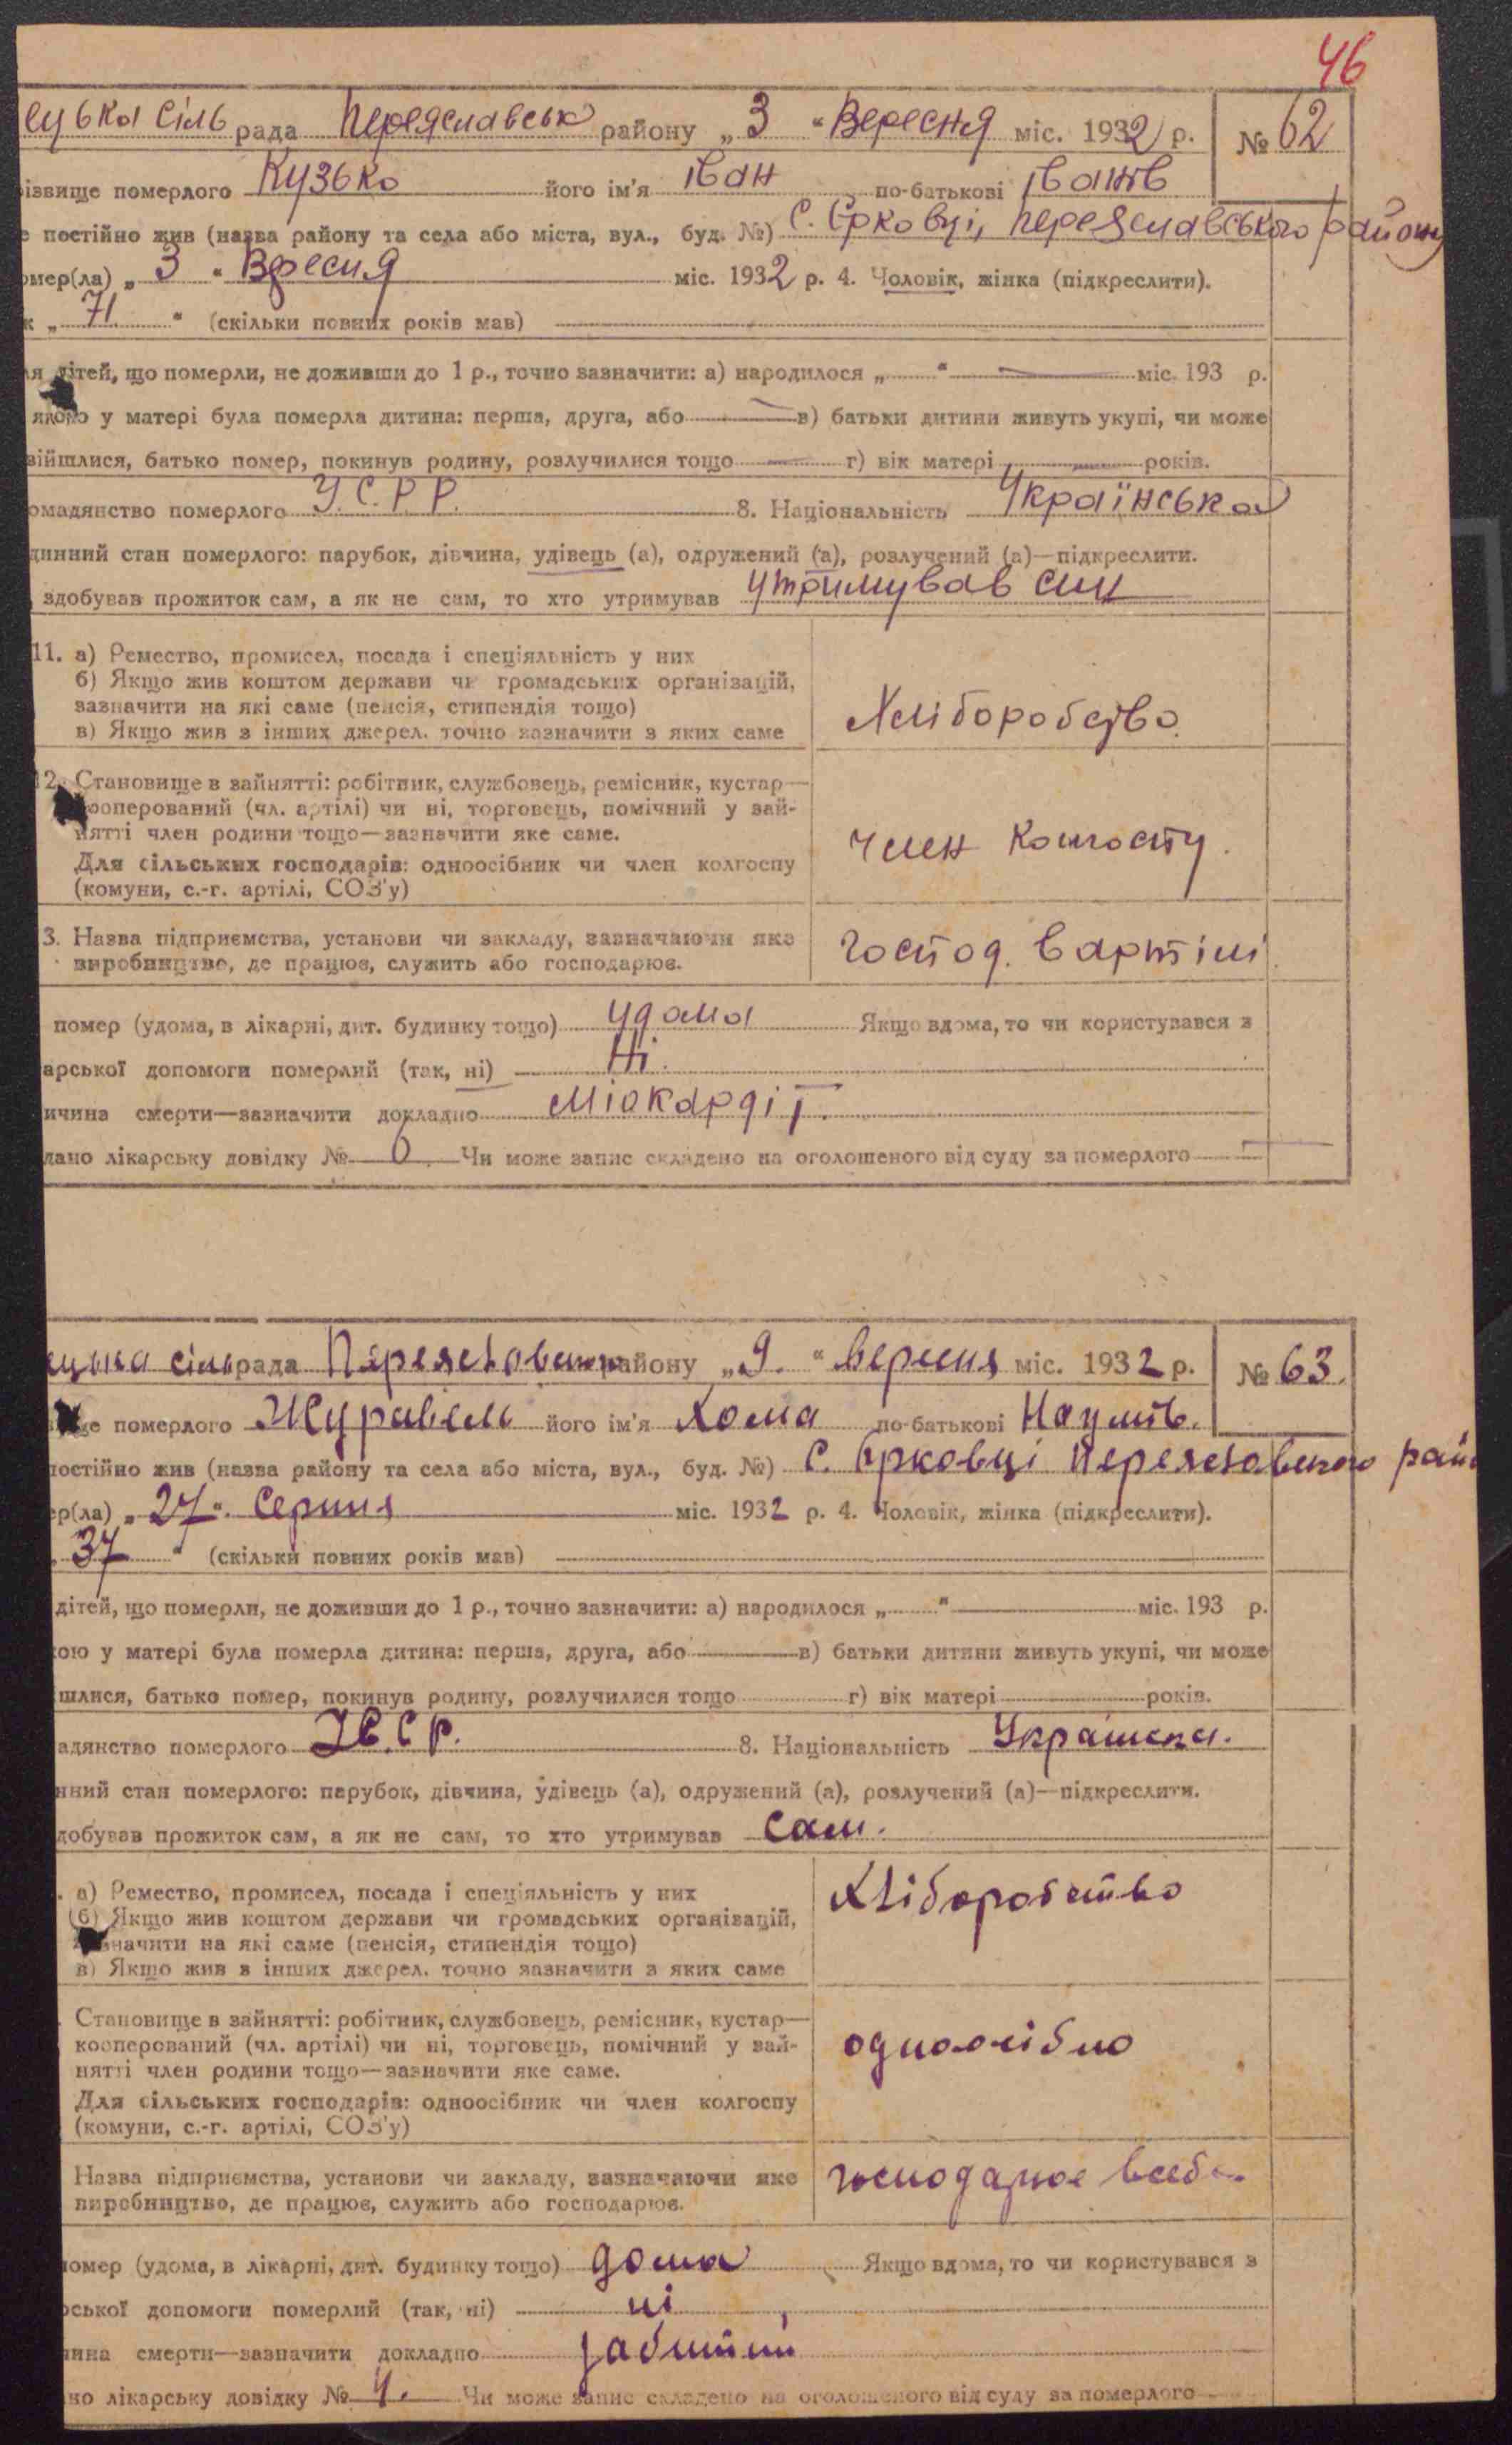 46
еуька сіль рада Переяславськ району „3“ Вересня міс. 1932 р. № 62
ізвище померлого Кузько його ім'я іван по-батькові іванів
е постійно жив (назва району та села або міста, вул., буд. №) С. Єрковці, переяславського району
омер(ла) „3“ Вересня міс. 1932 р. 4. Чоловік, жінка (підкреслити).
к „71“ (скільки повних років мав)
ля дітей, що померли, не доживши до 1 р., точно зазначити: а) народилося „ “ міс. 193 р.
якою у матері була померла дитина: перша, друга, або в) батьки дитини живуть укупі, чи може
війшлися, батько помер, покинув родину, розлучилися тощо г) вік матері років.
омадянство померлого У.С.Р.Р. 8. Національність Українська
динний стан померлого: парубок, дівчина, удівець (а), одружений (а), розлучений (а)—підкреслити.
здобував прожиток сам, а як не сам, то хто утримував утримував син
11. а) Ремество, промисел, посада і спеціяльність у них
б) Якщо жив коштом держави чи громадських організацій,
зазначити на які саме (пенсія, стипендія тощо)
в) Якщо жив з інших джерел. точно зазначити з яких саме
Хліборобство.
12. Становище в зайнятті: робітник, службовець, ремісник, кустар—
кооперований (чл. артілі) чи ні, торговець, помічний у зай-
нятті член родини тощо—зазначити яке саме.
Для сільських господарів: одноосібник чи член колгоспу
(комуни, с.-г. артілі, СОЗ'у)
член колгоспу.
3. Назва підприємства, установи чи закладу, зазначаючи яке
виробництво, де працює, служить або господарює.
Господ. в артілі
помер (удома, в лікарні, дит. будинку тощо) удома Якщо вдома, то чи користувався з
арської допомоги померлий (так, ні) Ні.
ичина смерти—зазначити докладно Міокардіт.
дано лікарську довідку № 6 Чи може запис складено на оголошеного від суду за померлого
ецька сільрада Переяславськ району „9.“ вересня міс. 1932 р. № 63.
ще померлого Журавель його ім'я Хома по-батькові Наумів.
постійно жив (назва району та села або міста, вул., буд. №) С. Єрковці Переяславського рай
ер(ла) „27“ Серпня міс. 1932 р. 4. Чоловік, жінка (підкреслити).
„37“ (скільки повних років мав)
дітей, що померли, не доживши до 1 р., точно зазначити: а) народилося „ “ міс. 193 р.
кою у матері була померла дитина: перша, друга, або в) батьки дитини живуть укупі, чи може
шлися, батько помер, покинув родину, розлучилися тощо г) вік матері років.
адянство померлого 8. Національність Українська.
нний стан померлого: парубок, дівчина, удівець (а), одружений (а), розлучений (а)—підкреслити.
добував прожиток сам, а як не сам, то хто утримував сам.
а) Ремество, промисел, посада і спеціяльність у них
(б) Якщо жив коштом держави чи громадських організацій,
зазначити на які саме (пенсія, стипендія тощо)
в) Якщо жив з інших джерел. точно зазначити з яких саме
Хліборобство
Становище в зайнятті: робітник, службовець, ремісник, кустар—
кооперований (чл. артілі) чи ні, торговець, помічний у зай-
нятті член родини тощо—зазначити яке саме.
Для сільських господарів: одноосібник чи член колгоспу
(комуни, с.-г. артілі, СОЗ'у)
одноосібно
Назва підприємства, установи чи закладу, зазначаючи яке
виробництво, де працює, служить або господарює.
господарює
помер (удома, в лікарні, дит. будинку тощо) дома Якщо вдома, то чи користувався з
рської допомоги померлий (так, ні) ні
чина смерти—зазначити докладно забитий
но лікарську довідку № 4. Чи може запис складено на оголошеного від суду за померлого